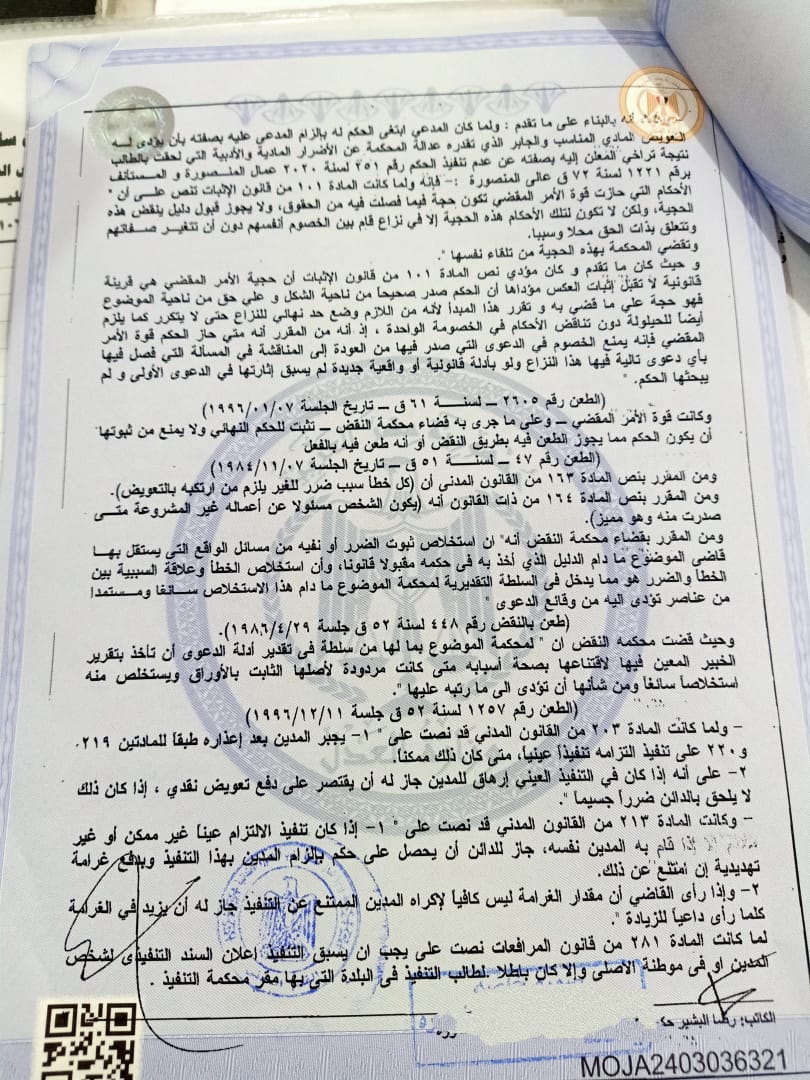 أنه بالبناء على ما تقدم : ولما كان المدعي ابتغى الحكم له بإلزام المدعي عليه بصفته بأن يؤدى له
التعويض المادي المناسب والجابر الذي تقدره عدالة المحكمة عن الأضرار المادية والأدبية التي لحقت بالطالب
نتيجة تراخي المعلن إليه بصفته عن عدم تنفيذ الحكم رقم ٢٥١ لسنة ٢٠٢٠ عمال المنصورة و المستأنف
برقم ١٢٢١ لسنة ٧٢ ق عالى المنصورة :- فإنه ولما كانت المادة ١٠١ من قانون الإثبات تنص على أن "
الأحكام التي حازت قوة الأمر المقضي تكون حجة فيما فصلت فيه من الحقوق، ولا يجوز قبول دليل ينقض هذه
الحجية، ولكن لا تكون لتلك الأحكام هذه الحجية إلا في نزاع قام بين الخصوم أنفسهم دون أن تتغير صفاتهم
وتتعلق بذات الحق محلا وسببا.
وتقضي المحكمة بهذه الحجية من تلقاء نفسها ".
و حيث كان ما تقدم و كان مؤدي نص المادة ١٠١ من قانون الإثبات أن حجية الأمر المقضي هي قرينة
قانونية لا تقبل إثبات العكس مؤداها أن الحكم صدر صحيحاً من ناحية الشكل و علي حق من ناحية الموضوع
فهو حجة علي ما قضي به و تقرر هذا المبدأ لأنه من اللازم وضع حد نهائي للنزاع حتى لا يتكرر كما يلزم
أيضاً للحيلولة دون تناقض الأحكام في الخصومة الواحدة ، إذ أنه من المقرر أنه متي حاز الحكم قوة الأمر
المقضي فإنه يمنع الخصوم في الدعوى التي صدر فيها من العودة إلى المناقشة في المسألة التي فصل فيها
بأي دعوى تالية فيها هذا النزاع ولو بأدلة قانونية أو واقعية جديدة لم يسبق إثارتها في الدعوى الأولى و لم
يبحثها الحكم. "
(الطعن رقم ٢٦٠٥ ــ لسنـــة ٦١ ق ــ تاريخ الجلسة ١٩٩٦/٠١/٠٧)
وكانت قوة الأمر المقضي ــ وعلى ما جرى به قضاء محكمة النقض ــ تثبت للحكم النهائي ولا يمنع من ثبوتها
أن يكون الحكم مما يجوز الطعن فيه بطريق النقض أو أنه طعن فيه بالفعل
(الطعن رقم ٤٧ ــ لسنـــة ٥١ ق ــ تاريخ الجلسة ١٩٨٤/١١/٠٧)
ومن المقرر بنص المادة ١٦٣ من القانون المدنى أن (كل خطأ سبب ضرر للغير يلزم من ارتكبه بالتعويض).
ومن المقرر بنص المادة ١٦٤ من ذات القانون أنه (يكون الشخص مسئولا عن أعماله غير المشروعة متى
صدرت منه وهو مميز).
ومن المقرر بقضاء محكمة النقض أنه" ان استخلاص ثبوت الضرر أو نفيه من مسائل الواقع التي يستقل بها
قاضى الموضوع ما دام الدليل الذي أخذ به فى حكمه مقبولا قانونا، وأن استخلاص الخطأ وعلاقة السببية بين
الخطأ والضرر هو مما يدخل في السلطة التقديرية لمحكمة الموضوع ما دام هذا الاستخلاص سائغا ومستمدا
من عناصر تؤدى اليه من وقائع الدعوى "
(طعن بالنقض رقم ٤٤٨ لسنة ٥٢ ق جلسة ١٩٨٦/٤/٢٩).
وحيث قضت محكمه النقض ان " لمحكمة الموضوع بما لها من سلطة فى تقدير أدلة الدعوى أن تأخذ بتقرير
الخبير المعين فيها لاقتناعها بصحة أسبابه متى كانت مردودة لأصلها الثابت بالأوراق ويستخلص منه
استخلاصاً سائغاً ومن شأنها أن تؤدى الى ما رتبه عليها ".
(الطعن رقم ١٢٥٧ لسنة ٥٢ ق جلسة ١٩٩٦/١٢/١١)
- ولما كانت المادة ٢٠٣ من القانون المدني قد نصت على " ١- يجبر المدين بعد إعذاره طبقاً للمادتين ٢١٩
و٢٢٠ على تنفيذ التزامه تنفيذاً عينياً، متى كان ذلك ممكناً.
٢- على أنه إذا كان في التنفيذ العيني إرهاق للمدين جاز له أن يقتصر على دفع تعويض نقدي ، إذا كان ذلك
لا يلحق بالدائن ضرراً جسيماً ".
- وكانت المادة ٢١٣ من القانون المدني قد نصت على " ١- إذا كان تنفيذ الالتزام عيناً غير ممكن أو غير
إلا إذا قام به المدين نفسه، جاز للدائن أن يحصل على حكم بإلزام المدين بهذا التنفيذ وبدفع غرامة
تهديدية إن امتنع عن ذلك.
٢- وإذا رأى القاضي أن مقدار الغرامة ليس كافياً لإكراه المدين الممتنع عن التنفيذ جاز له أن يزيد في الغرامة
كلما رأى داعياً للزيادة ".
لما كانت المادة ٢٨١ من قانون المرافعات نصت على يجب ان يسبق التنفيذ إعلان السند التنفيذى لشخص
المدين او فى موطنة الاصلى وإلا كان باطلا. لطالب التنفيذ فى البلدة التى بها مقر محكمة التنفيذ .
الكاتب: رضا البشير
MOJA2403036321